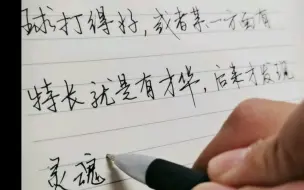 球打得好，或者某一方面有
特长就是有才华，后来才发现
灵魂